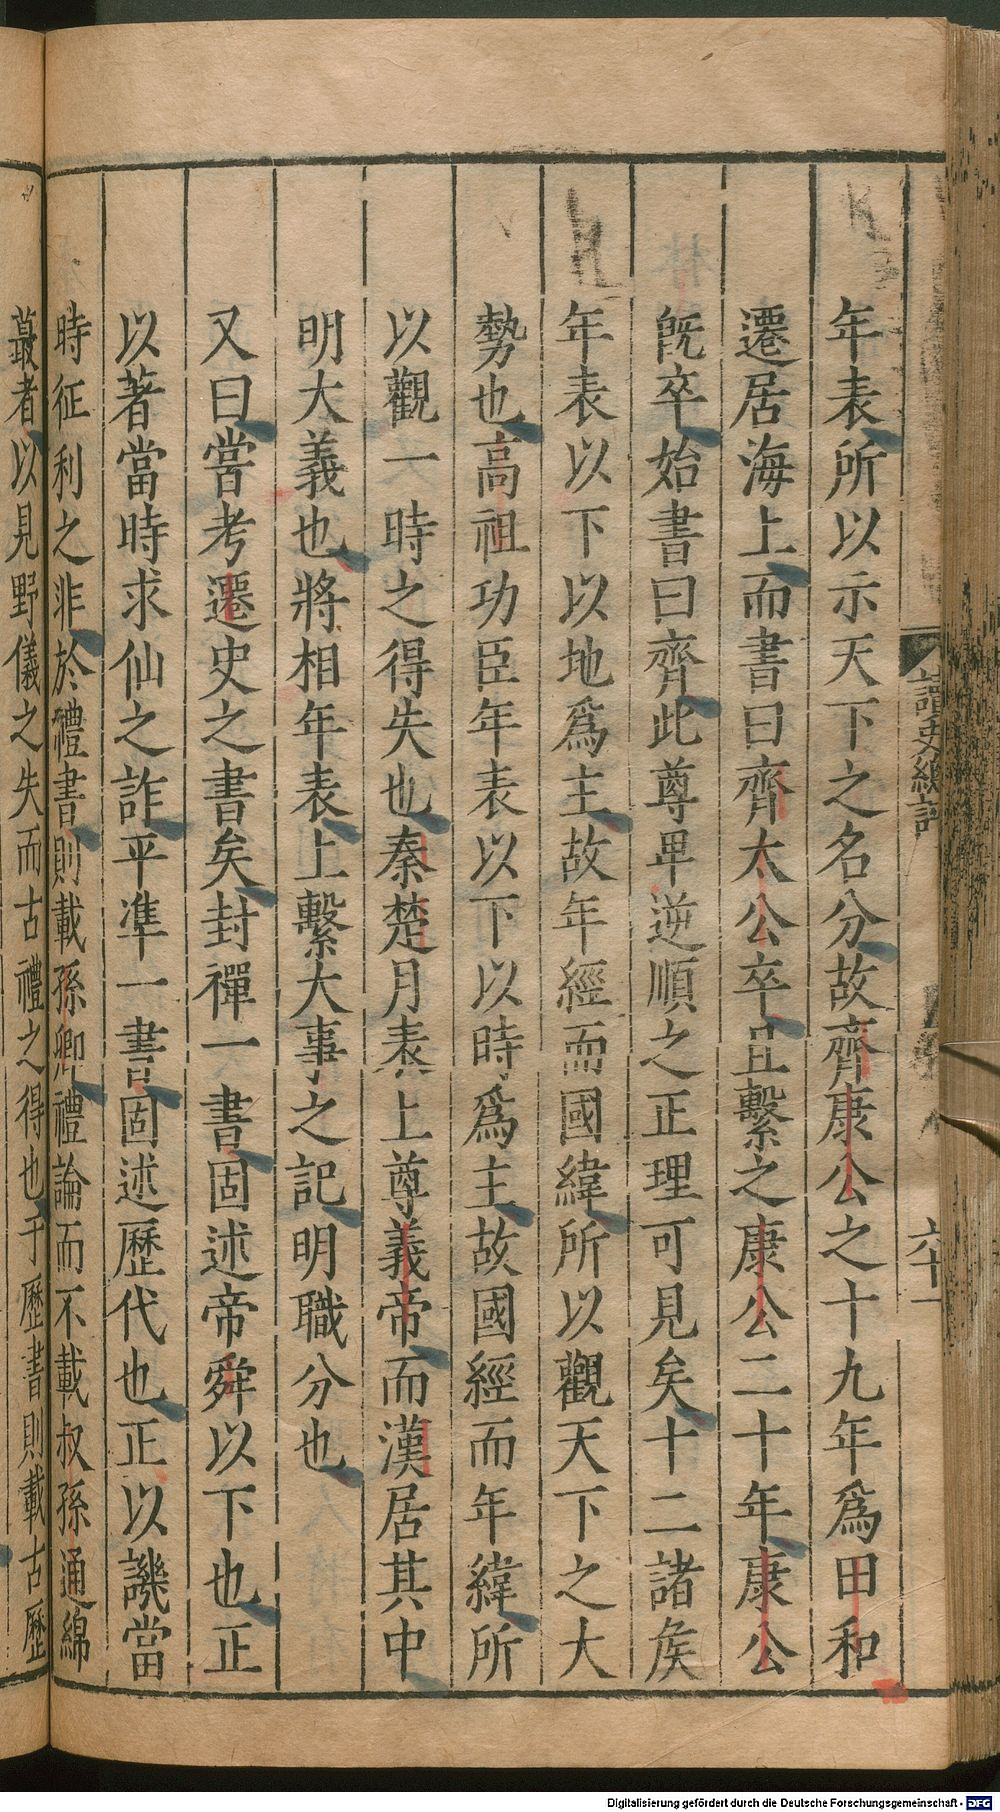 讀史總評
六十一
年表所以示天下之名分故齊康公之十九年爲田和
遷居海上而書曰齊太公卒且繫之康公二十年康公
旣卒始書曰齊此尊卑逆順之正理可見矣十二諸矦
年表以下以地爲主故年經而國緯所以觀天下之大
勢也高祖功臣年表以下以時爲主故國經而年緯所
以觀一時之得失也秦楚月表上尊義帝而漢居其中
明大義也將相年表上繫大事之記明職分也
又曰嘗考遷史之書矣封禪一書固述帝舜以下也正
以著當時求仙之詐平準一書固述歷代也正以譏當
時征利之非於禮書則載孫卿禮論而不載叔孫通綿
蕞者以見野儀之失而古禮之得也于歷書則載古歷
Digitalisierung gefördert durch die Deutsche Forschungsgemeinschaft - DFG